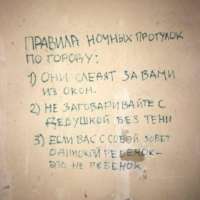 ПРАВИЛА НОЧНЫХ ПРОГУЛОК
ПО ГОРОДУ:
1) ОНИ СЛЕДЯТ ЗА ВАМИ
ИЗ ОКОН.
2) НЕ ЗАГОВАРИВАЙТЕ С
ДЕДУШКОЙ БЕЗ ТЕНИ
3) ЕСЛИ ВАС С СОБОЙ ЗОВЕТ
ОДИНОКИЙ РЕБЕНОК -
ЭТО НЕ РЕБЕНОК